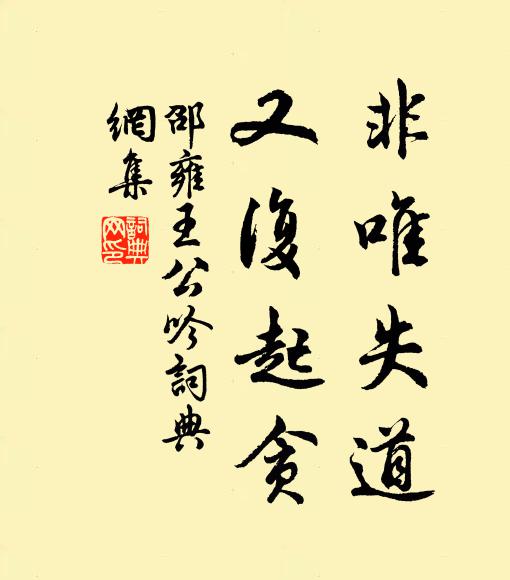 非唯失道
又復起貪
邵雍王公吟詞典
網集
詞典
網印